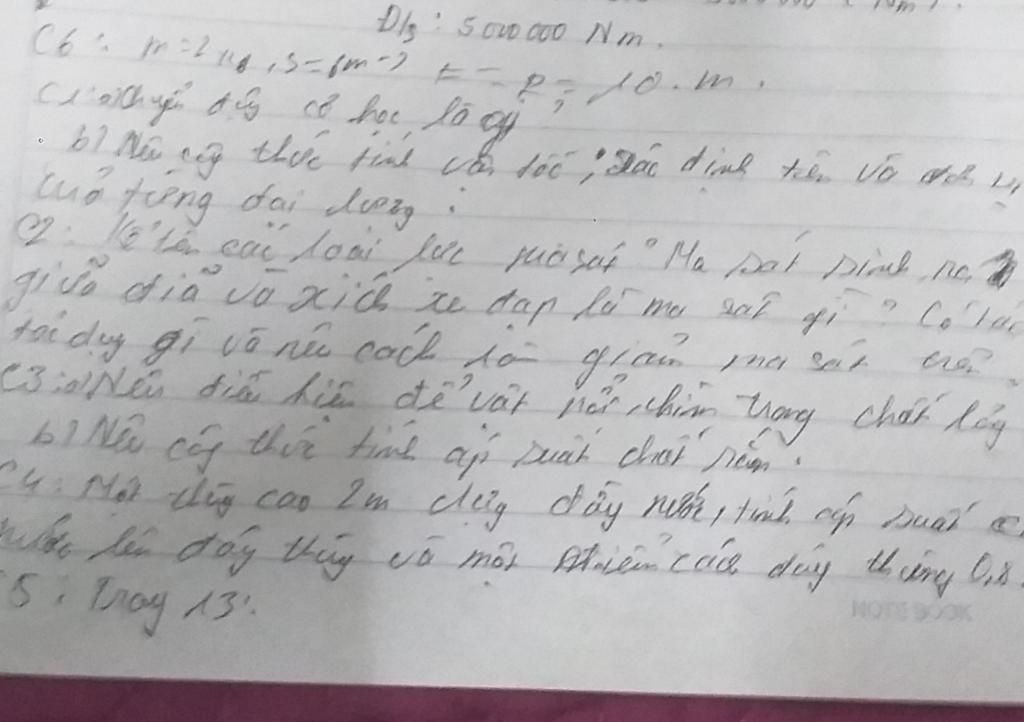 Đ/s: 5000000 Nm.
C6: m=2 kg, s=6m → F = P = 10.m.
C1: a) chuyển động cơ học là gì?
b) Nêu công thức tính vận tốc, xác định tên và đơn vị
của từng đại lượng.
C2: Kể tên các loại lực ma sát? Ma sát sinh ra
giữa đĩa và xích xe đạp là ma sát gì? Có tác
tác dụng gì và nêu cách làm giảm ma sát trên
C3: a) Nêu điều kiện để vật nổi, chìm trong chất lỏng
b) Nêu công thức tính áp suất chất rắn.
C4: Một thùng cao 2m đựng đầy nước, tính áp suất
nước lên đáy thùng và một điểm cách đáy thùng 0,8
C5: Trang 13.